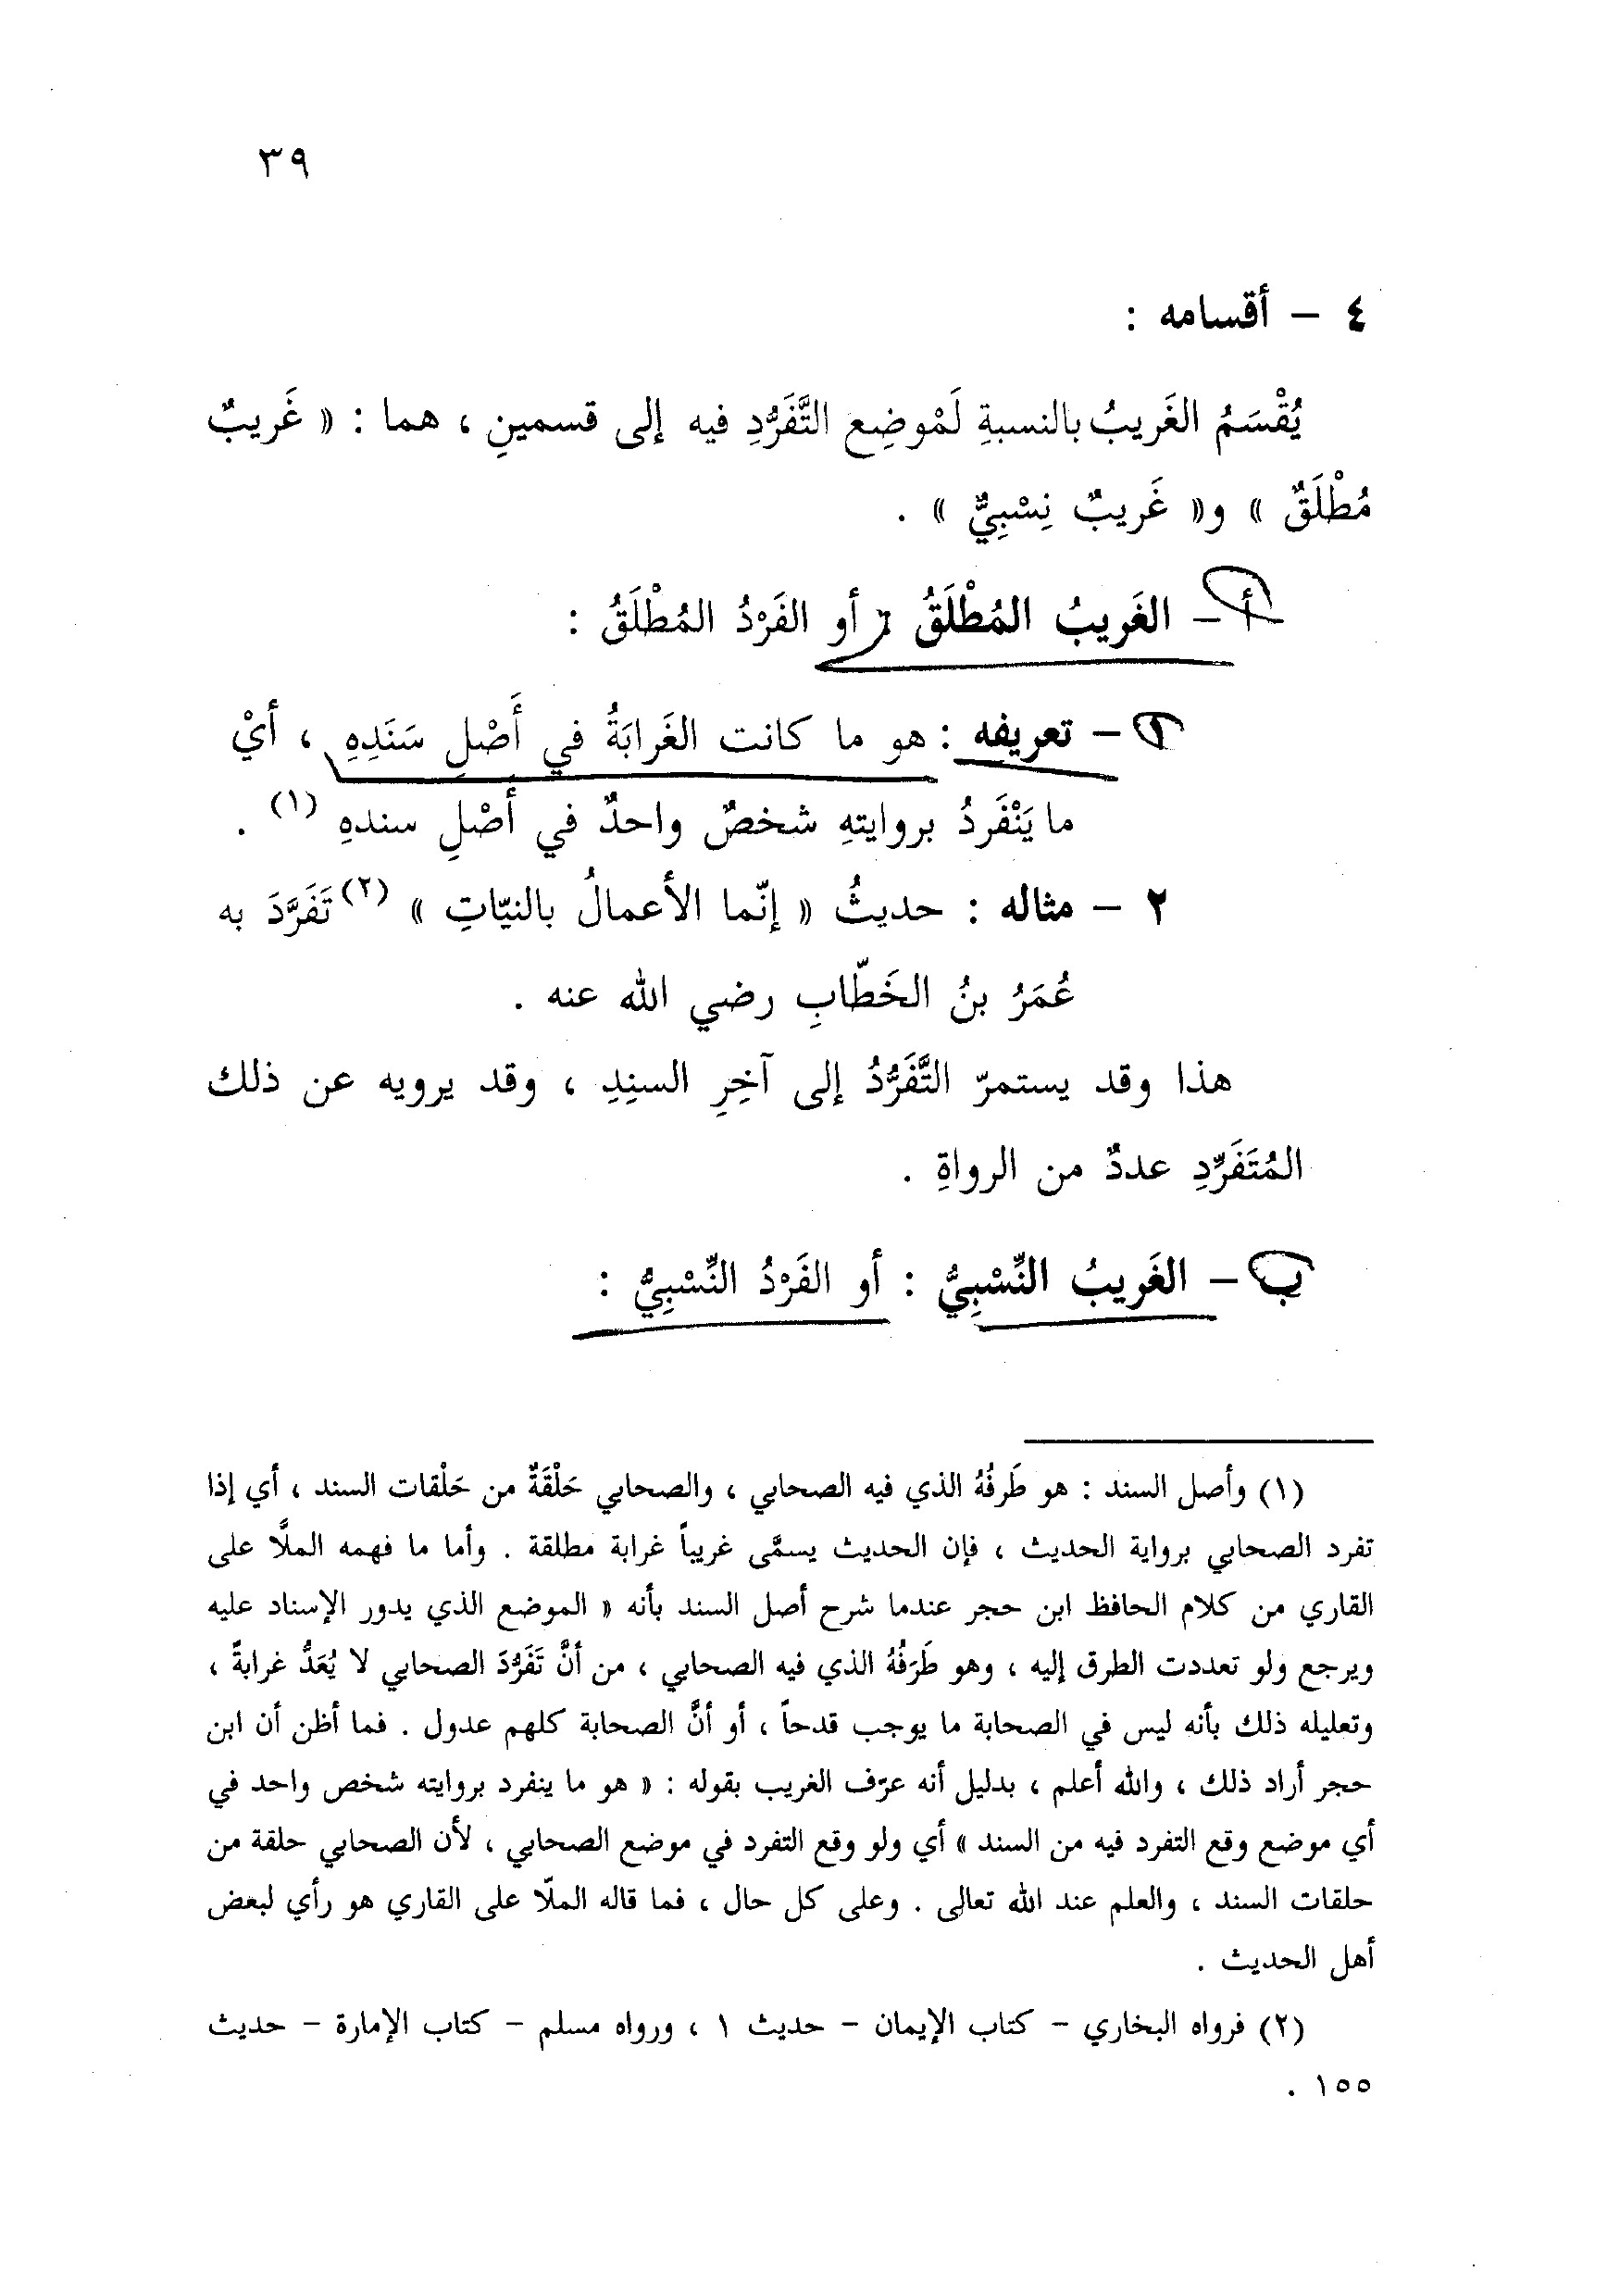 ٣٩
٤ – أقسامه :
يُقْسَمُ الغَريبُ بالنسبةِ لَمْوضِعِ التَّفَرُّدِ فيه إلى قسمينِ ، هما : « غَريبٌ
مُطْلَقٌ » و« غَريبٌ نِسْبِيٌّ » .
أ – الغَريبُ المُطْلَقُ : أو الفَرْدُ المُطْلَقُ :
١ – تعريفه : هو ما كانت الغَرابَةُ في أَصْلِ سَنَدِهِ ، أيْ
ما يَنْفَرِدُ بروايتهِ شخصٌ واحدٌ في أَصْلِ سندهِ (١) .
٢ – مثاله : حديثُ « إنّما الأعمالُ بالنيّاتِ » (٢) تَفَرَّدَ به
عُمَرُ بنُ الخَطّابِ رضي الله عنه .
هذا وقد يستمرّ التَّفَرُّدُ إلى آخِرِ السنِدِ ، وقد يرويه عن ذلك
المُتَفَرِّدِ عددٌ من الرواةِ .
ب – الغَريبُ النِّسْبِيُّ : أو الفَرْدُ النِّسْبِيُّ :
(١) وأصل السند : هو طَرفُهُ الذي فيه الصحابي ، والصحابي حَلْقَةٌ من حَلْقات السند ، أي إذا
تفرد الصحابي برواية الحديث ، فإن الحديث يسمَّى غريباً غرابة مطلقة . وأما ما فهمه الملَّا على
القاري من كلام الحافظ ابن حجر عندما شرح أصل السند بأنه « الموضع الذي يدور الإسناد عليه
ويرجع ولو تعددت الطرق إليه ، وهو طَرَفُهُ الذي فيه الصحابي ، من أنَّ تَفَرُّدَ الصحابي لا يُعَدُّ غرابةً ،
وتعليله ذلك بأنه ليس في الصحابة ما يوجب قدحاً ، أو أنَّ الصحابة كلهم عدول . فما أظن أن ابن
حجر أراد ذلك ، والله أعلم ، بدليل أنه عرّف الغريب بقوله : « هو ما ينفرد بروايته شخص واحد في
أي موضع وقع التفرد فيه من السند » أي ولو وقع التفرد في موضع الصحابي ، لأن الصحابي حلقة من
حلقات السند ، والعلم عند الله تعالى . وعلى كل حال ، فما قاله الملّا على القاري هو رأي لبعض
أهل الحديث .
(٢) فرواه البخاري – كتاب الإيمان – حديث ١ ، ورواه مسلم – كتاب الإمارة – حديث
١٥٥ .